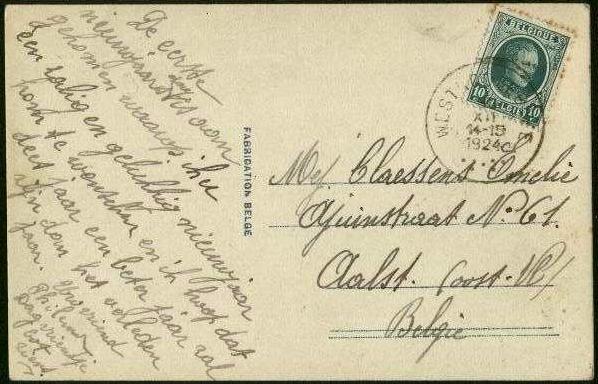 De eerste
nieuwjaardag is aan
gekomen waarop ik u
een zalig en gelukkig nieuwjaar
kom te wenschen en ik hoop dat
deet jaar een beter jaar zal
zijn dan het verleden
jaar.
vriend
FABRICATION BELGE
BELGIQUE
10 10
BELGIE
WEST
XII
14-15
1924
Mej Claessens Emelie
Ajuinstraat No 61.
Aalst. (oost. Vl)
Belgie